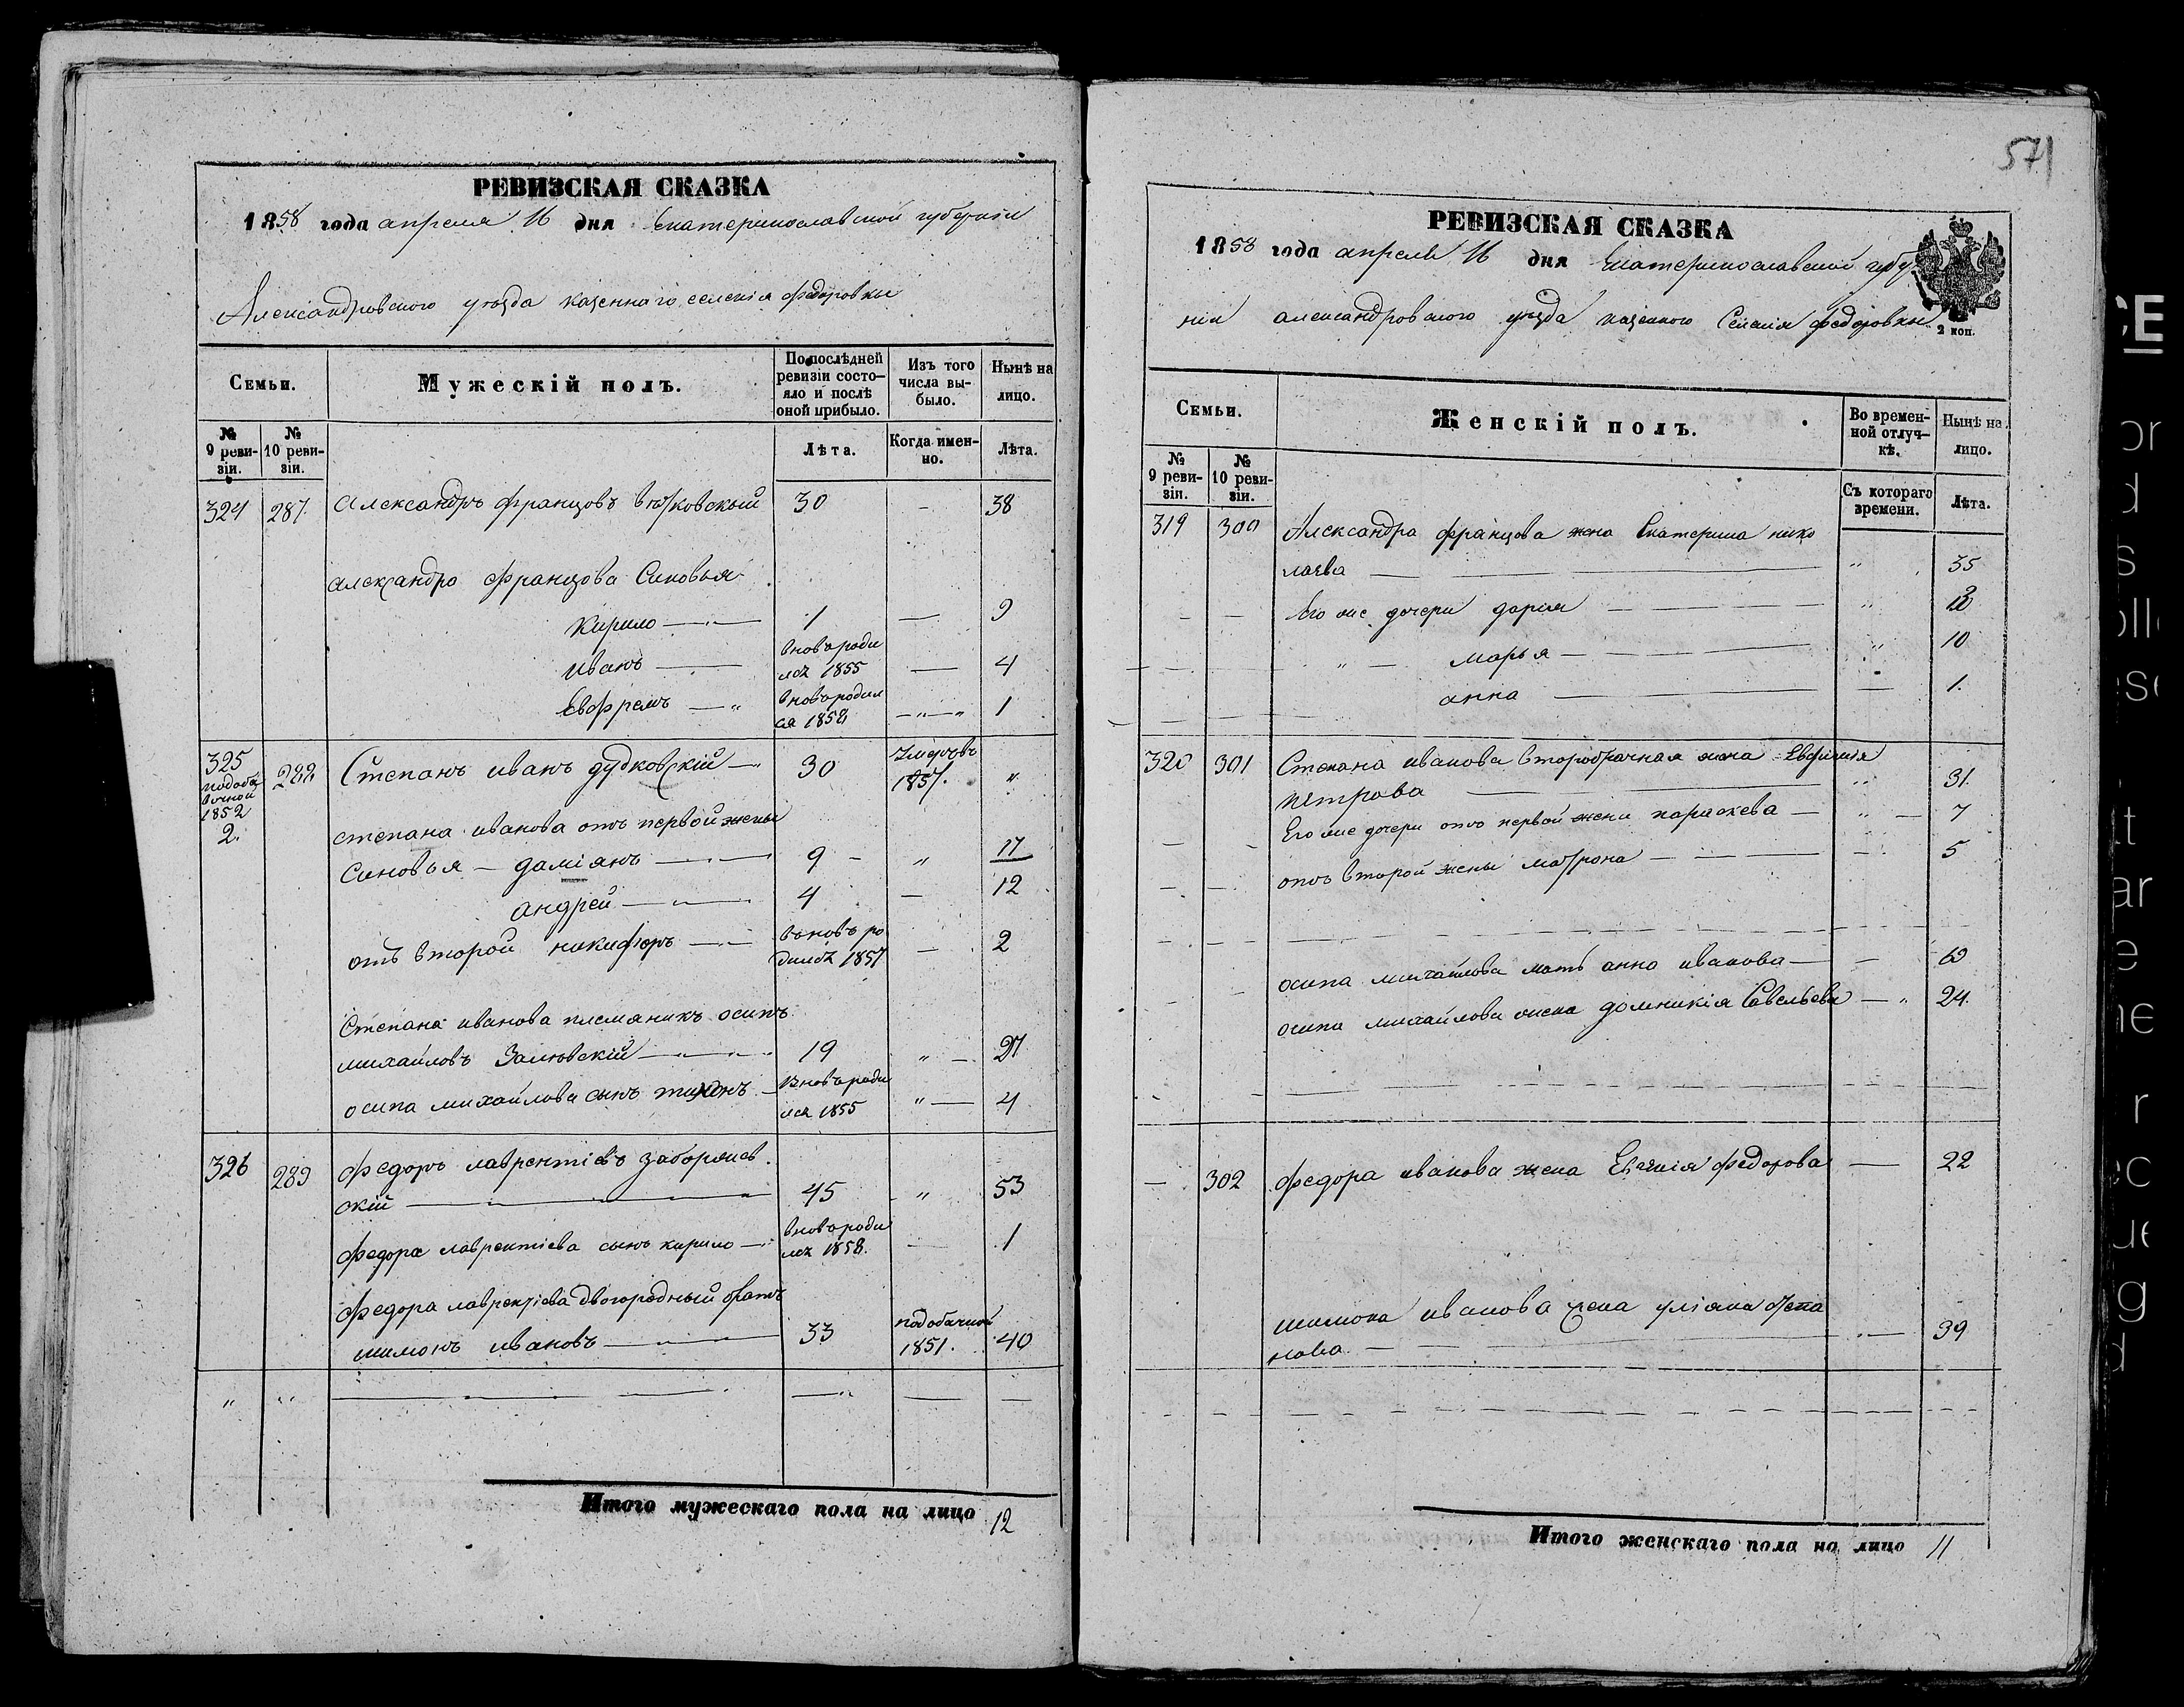 РЕВИЗСКАЯ СКАЗКА
1858 года апреля 16 дня Екатеринославской губернiи
Александровского уезда казеннаго селенiя Федоровки
Семьи. Мужескiй полъ. По послѣдней ревизiи состояло и послѣ оной прибыло. Изъ того числа выбыло. Нынѣ на лицо.
№ 9 ревизiи. № 10 ревизiи. Лѣта. Когда именно. Лѣта.
324 287 Александръ Францовъ 30 - 38
александра Францова Синовья
Кирило 1 — 9
вновь роди
иванъ лся 1855 — 4
Евфремъ вновь родил 1
ся 1858
325 288 Степанъ иванъ дудковскiй 30 умеръ въ
1857. "
1852
2.
степана иванова отъ первой жены
Синовья — дамiянъ 9 - " 17
андрей 4 — 12
отъ второй никифоръ вновь ро 2
дился 1857
Степана иванова племяникъ осипъ
михайловъ 19 " 27
осипа михайлова сынъ тихонъ вновь роди
лся 1855 " — 4
326 289 Федоръ лаврентiевъ
скiй 45 " 53
Федора лаврентiева сынъ кирило вновь роди
лся 1858. — 1
Федора лаврентiева двоюродный братъ
шимонъ ивановъ 33 1851. 40
Итого мужескаго пола на лицо 12
571
РЕВИЗСКАЯ СКАЗКА
1858 года апреля 16 дня Екатеринославской губер
нiи александровского уезда казенного Селенiя Федоровки
2 коп.
Семьи. Женскiй полъ. Во временной отлучкѣ. Нынѣ на лицо.
№ 9 ревизiи. № 10 ревизiи. Съ котораго времени. Лѣта.
319 300 Александра Францова жена Екатерина нико
лаева " 35
Его же дочери дария "
" — марья " 10
анна — 1.
320 301 Степана иванова второбрачная жена Евфимiя
петрова " 31.
Его же дочери отъ первой жени параскева " — 7
отъ второй жены матрона — 5
осипа михайлова мать анна иванова —
осипа михайлова жена домникiя Савельева — " 24.
— 302 Федора иванова жена Евгенiя Федорова — 22
шимона иванова жена улiяна степа
нова 39
Итого женскаго пола на лицо 11